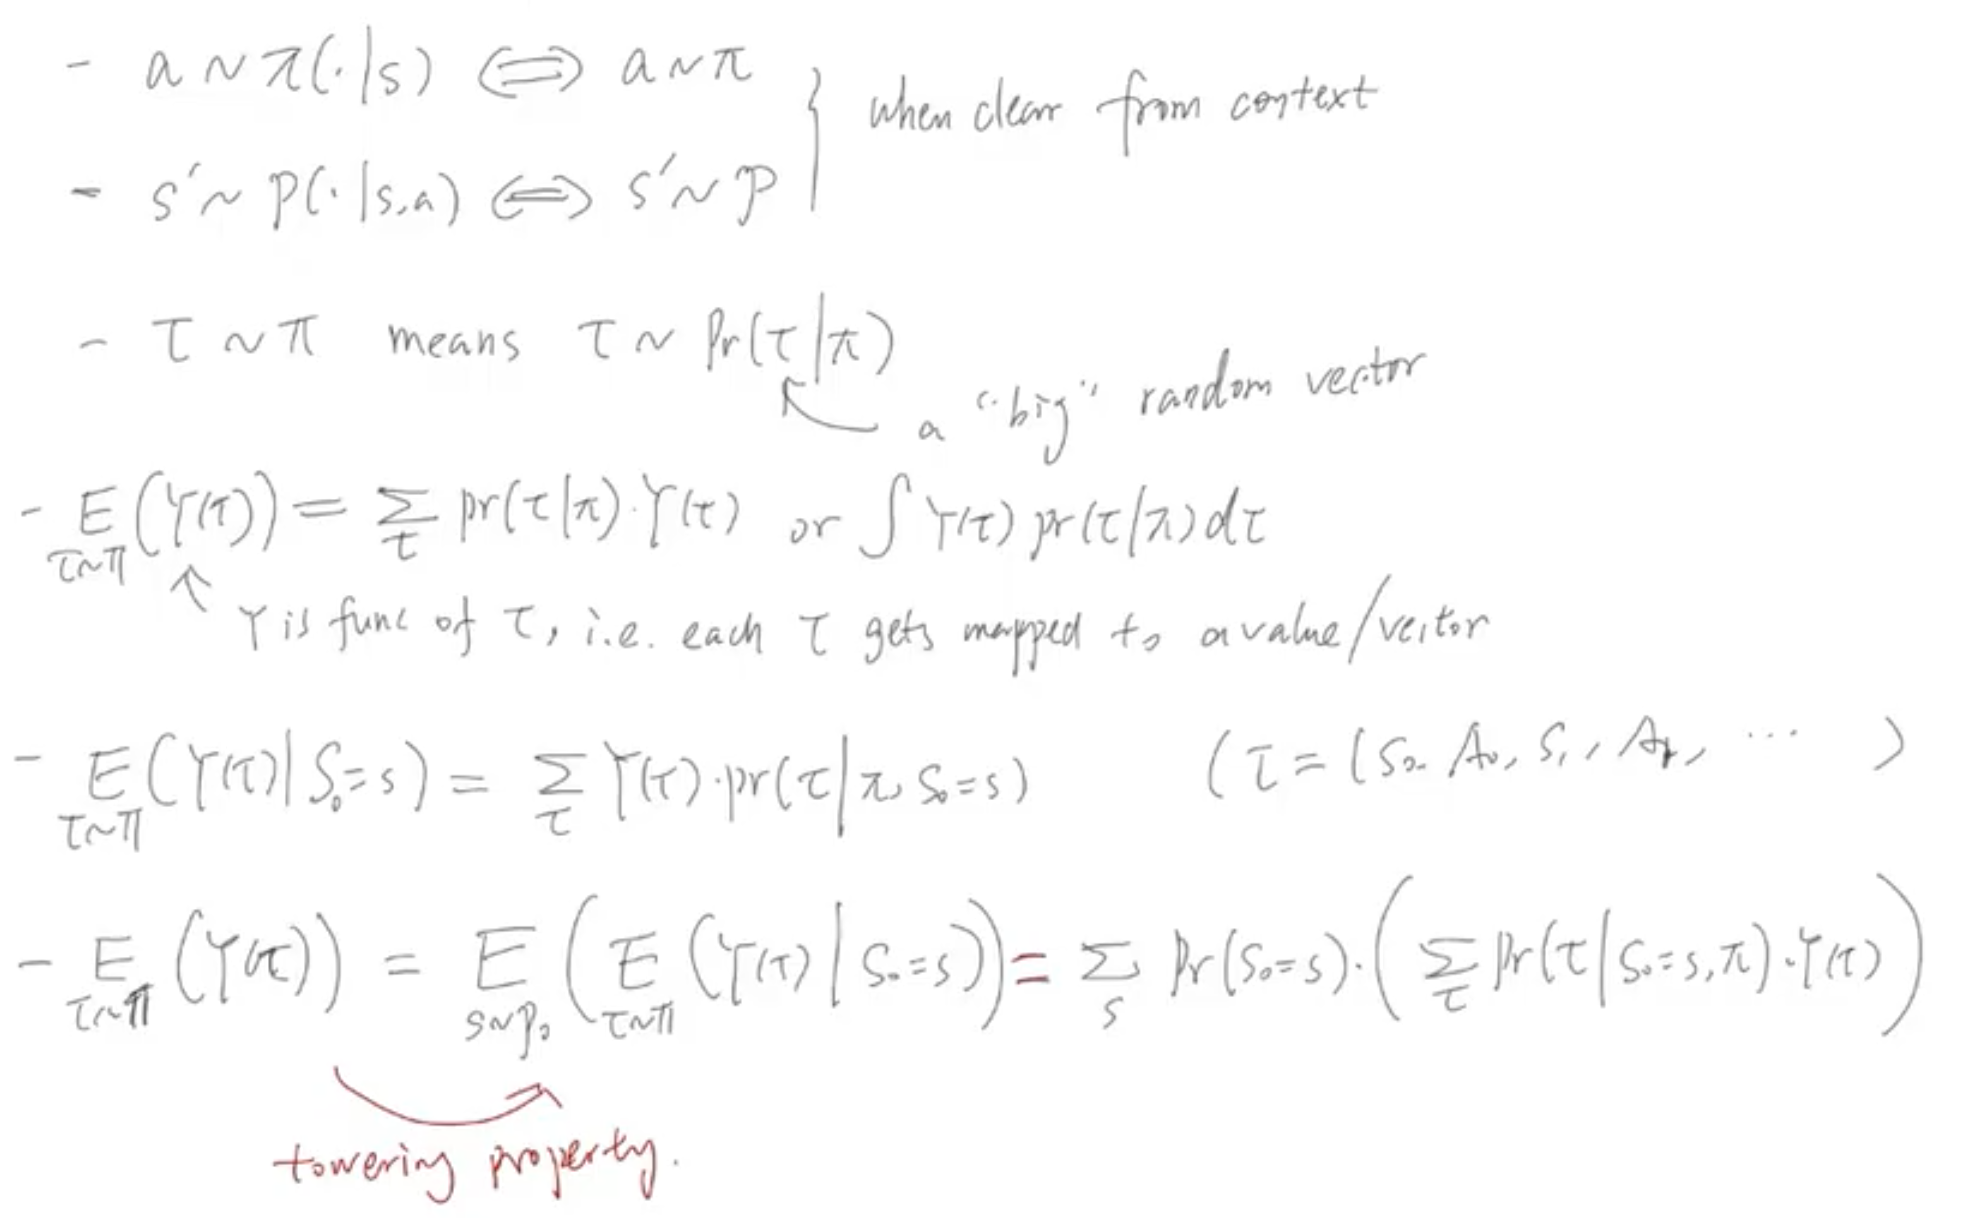 - a ~ π(·|s) ⟺ a ~ π
- s' ~ p(·|s,a) ⟺ s' ~ p
} when clear from context
- τ ~ π means τ ~ Pr(τ|π)
a "big" random vector
- E_{τ~π}(Y(τ)) = Σ_τ pr(τ|π)·Y(τ) or ∫ Y(τ) pr(τ|π) dτ
Y is func of τ, i.e. each τ gets mapped to a value/vector
- E_{τ~π}(Y(τ)|S₀=s) = Σ_τ Y(τ)·pr(τ|π, S₀=s) (τ = (S₀, A₀, S₁, A₁, ... )
- E_{τ~π}(Y(τ)) = E_{s~p₀}(E_{τ~π}(Y(τ)|S₀=s)) = Σ_s Pr(S₀=s)·(Σ_τ Pr(τ|S₀=s,π)·Y(τ))
towering property.